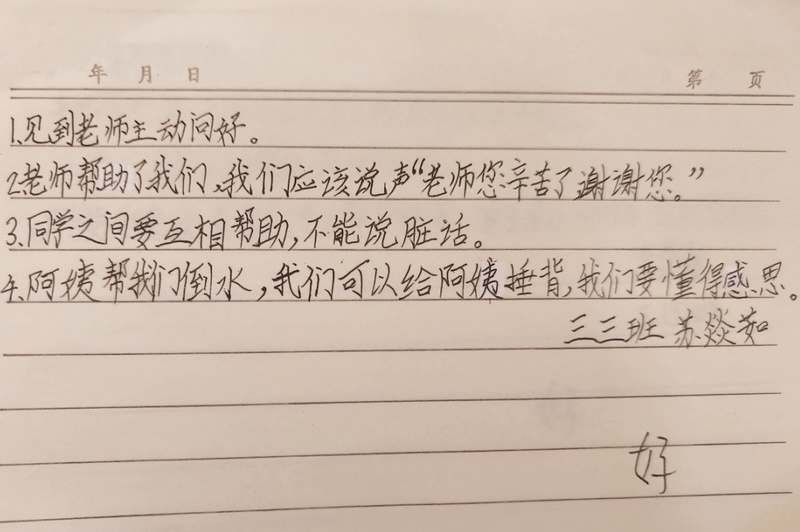 年 月 日 第 页
1.见到老师主动问好。
2.老师帮助了我们,我们应该说声“老师您辛苦了谢谢您。”
3.同学之间要互相帮助,不能说脏话。
4.阿姨帮我们倒水,我们可以给阿姨捶背,我们要懂得感思。
三三班 苏燚茹
好